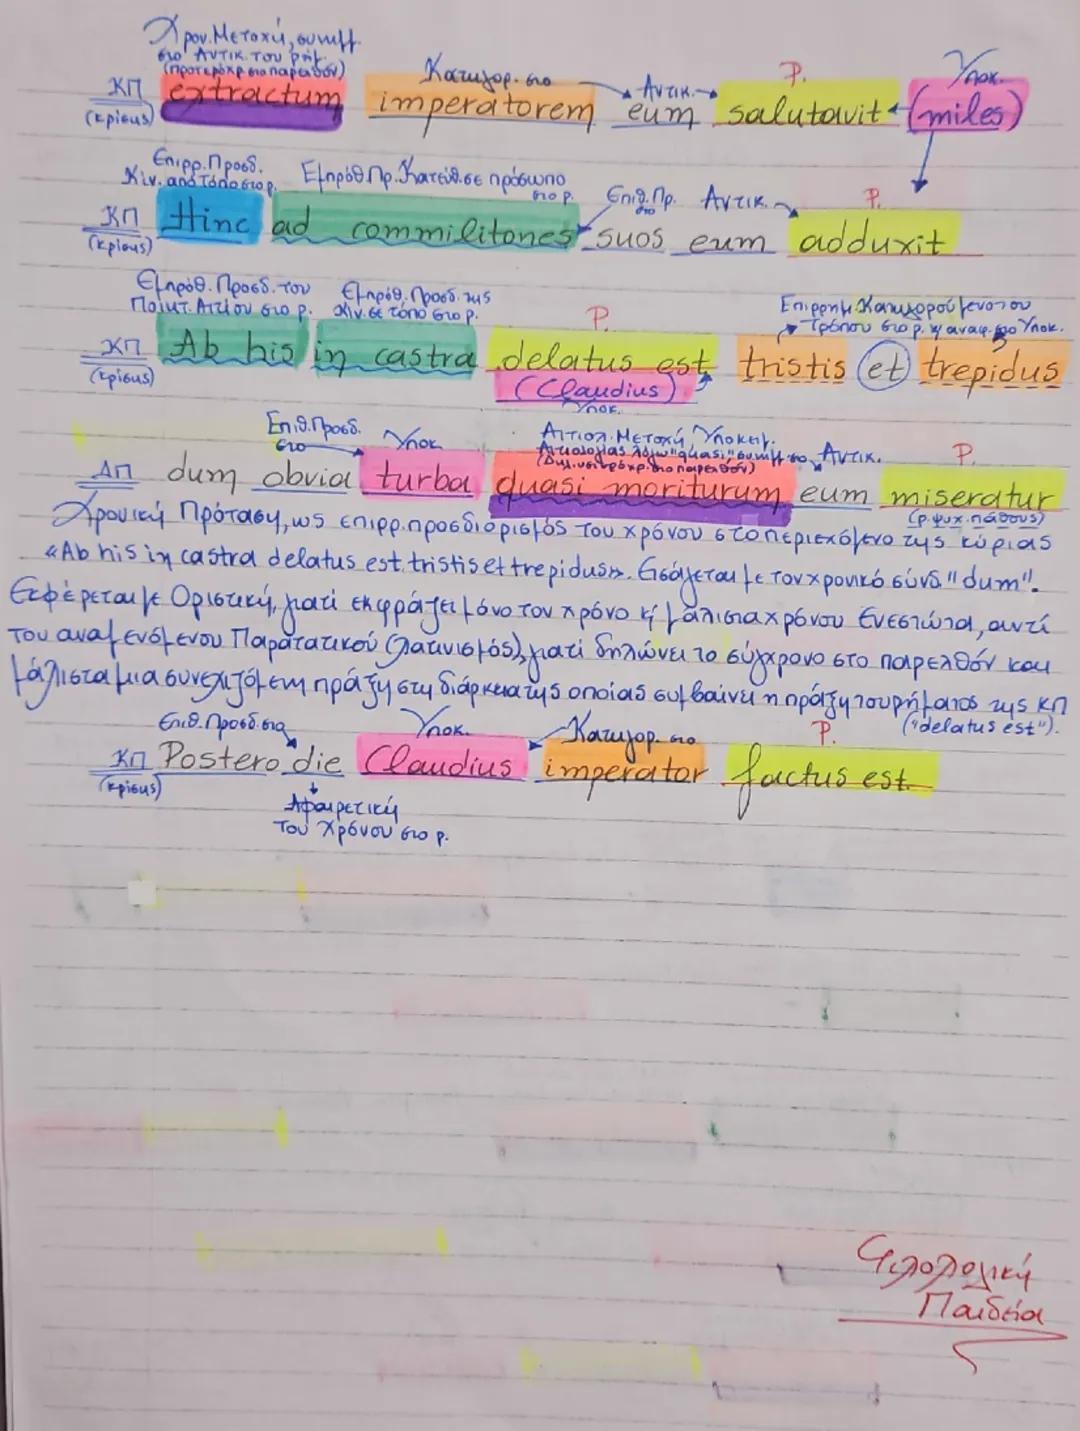 Χρον. Μετοχή, συνημμ.
στο Αντικ. του ρήμ.
(προτερόχρ. στο παρελθόν)
Κατηγορ. στο
Αντικ.
Ρ.
Υποκ.
ΚΠ extractum imperatorem eum salutavit (miles)
(κρίσης)
Επιρρ. Προσδ.
Κίν. από Τόπο στο ρ.
Εμπρόθ. Πρ. Κατεύθ. σε πρόσωπο
στο ρ.
Επιθ. Πρ.
στο
Αντικ.
Ρ.
ΚΠ Hinc ad commilitones suos eum adduxit
(κρίσης)
Εμπρόθ. Προσδ. του
Ποιητ. Αιτίου στο ρ.
Εμπρόθ. Προσδ. της
κίν. σε τόπο στο ρ.
Ρ.
Επιρρημ. Κατηγορούμενο του
Τρόπου στο ρ. κ' αναφ. στο Υποκ.
ΚΠ Ab his in castra delatus est tristis et trepidus
(κρίσης)
(Claudius)
Υποκ.
Επιθ. Προσδ.
στο
Υποκ.
Αιτιολ. Μετοχή, Υποκειμ.
Αιτιολογίας λόγω "quasi", συνημμ. στο
Αντικ.
Ρ.
ΔΠ dum obvia turba quasi moriturum eum miseratur
(ρ. ψυχ. πάθους)
Χρονική Πρόταση, ως επιρρ. προσδιορισμός του χρόνου στο περιεχόμενο της κύριας
«Ab his in castra delatus est tristis et trepidus». Εισάγεται με τον χρονικό σύνδ. "dum".
Εκφέρεται με Οριστική, γιατί εκφράζει μόνο τον χρόνο κ' μάλιστα χρόνου Ενεστώτα, αντί
του αναμενόμενου Παρατατικού (λατινισμός), γιατί δηλώνει το σύγχρονο στο παρελθόν και
μάλιστα μια συνεχιζόμενη πράξη στη διάρκεια της οποίας συμβαίνει η πράξη του ρήματος της ΚΠ
("delatus est").
Επιθ. Προσδ. στο
Υποκ.
Κατηγορ. στο
Ρ.
ΚΠ Postero die Claudius imperator factus est.
(κρίσης)
Αφαιρετική
του Χρόνου στο ρ.
Φιλολογική
Παιδεία